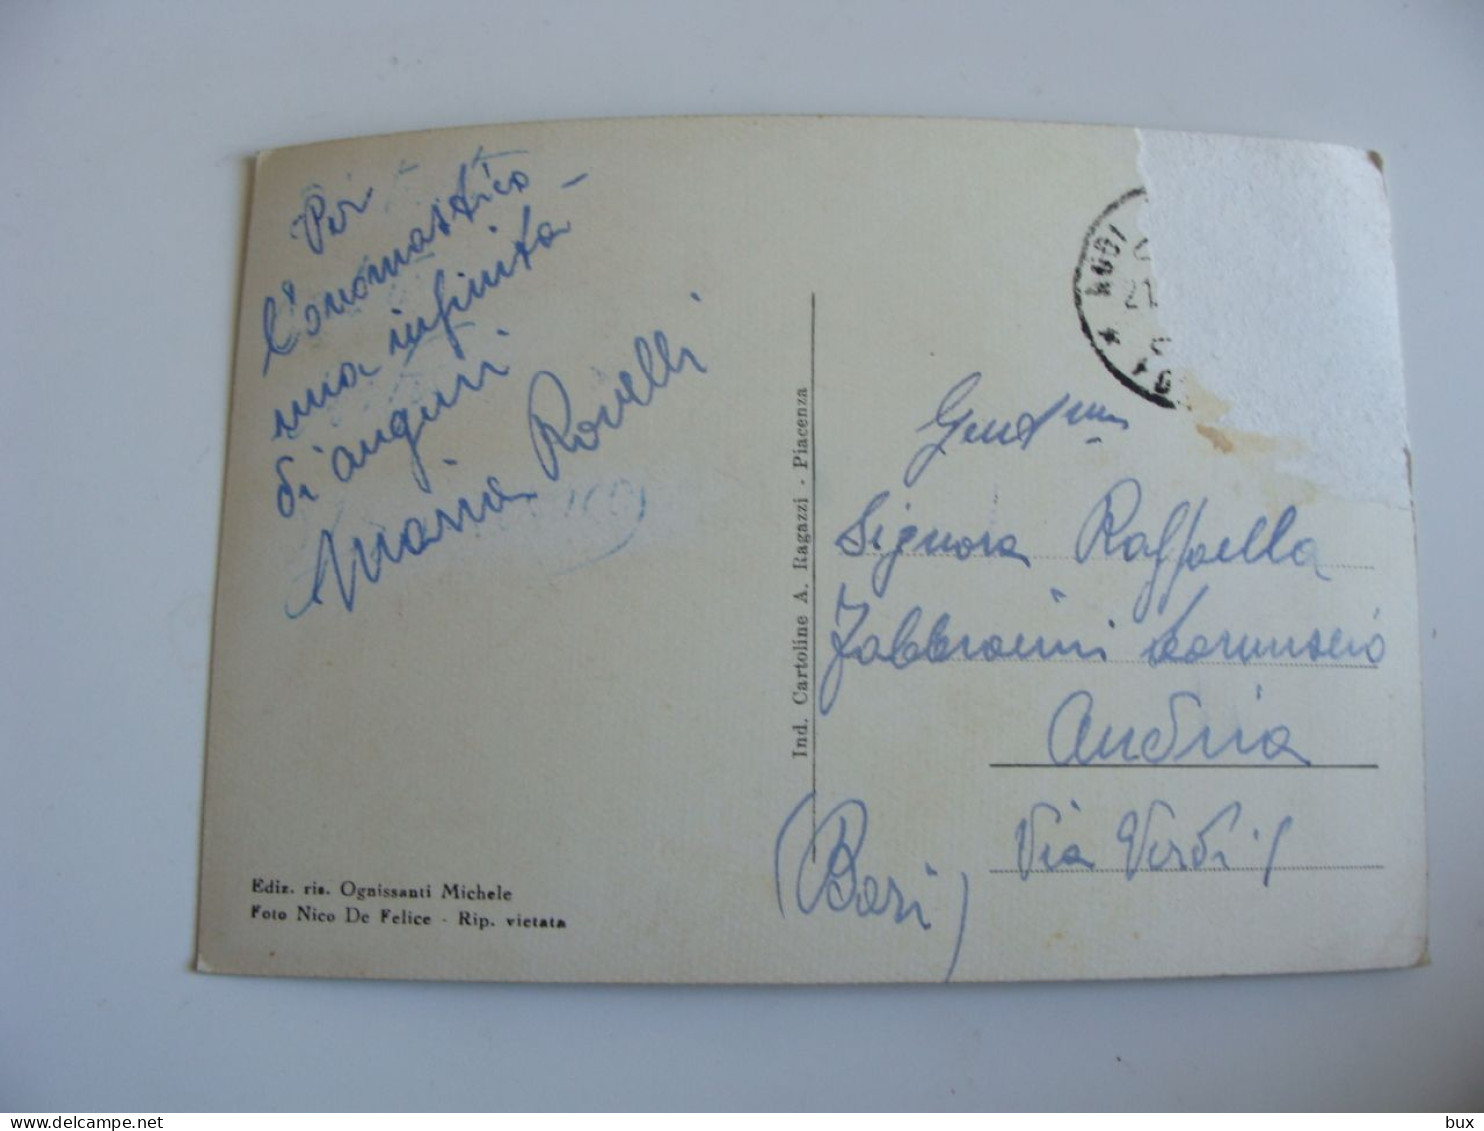 Per
l'onomastico
una infinita -
di auguri
Maria Rovelli
Ediz. ris. Ognissanti Michele
Foto Nico De Felice - Rip. vietata
Ind. Cartoline A. Ragazzi - Piacenza
21
Gent/ma
Signora Raffaella
Andria
Via Verdi 1
(Bari)
delcampe.net
bux